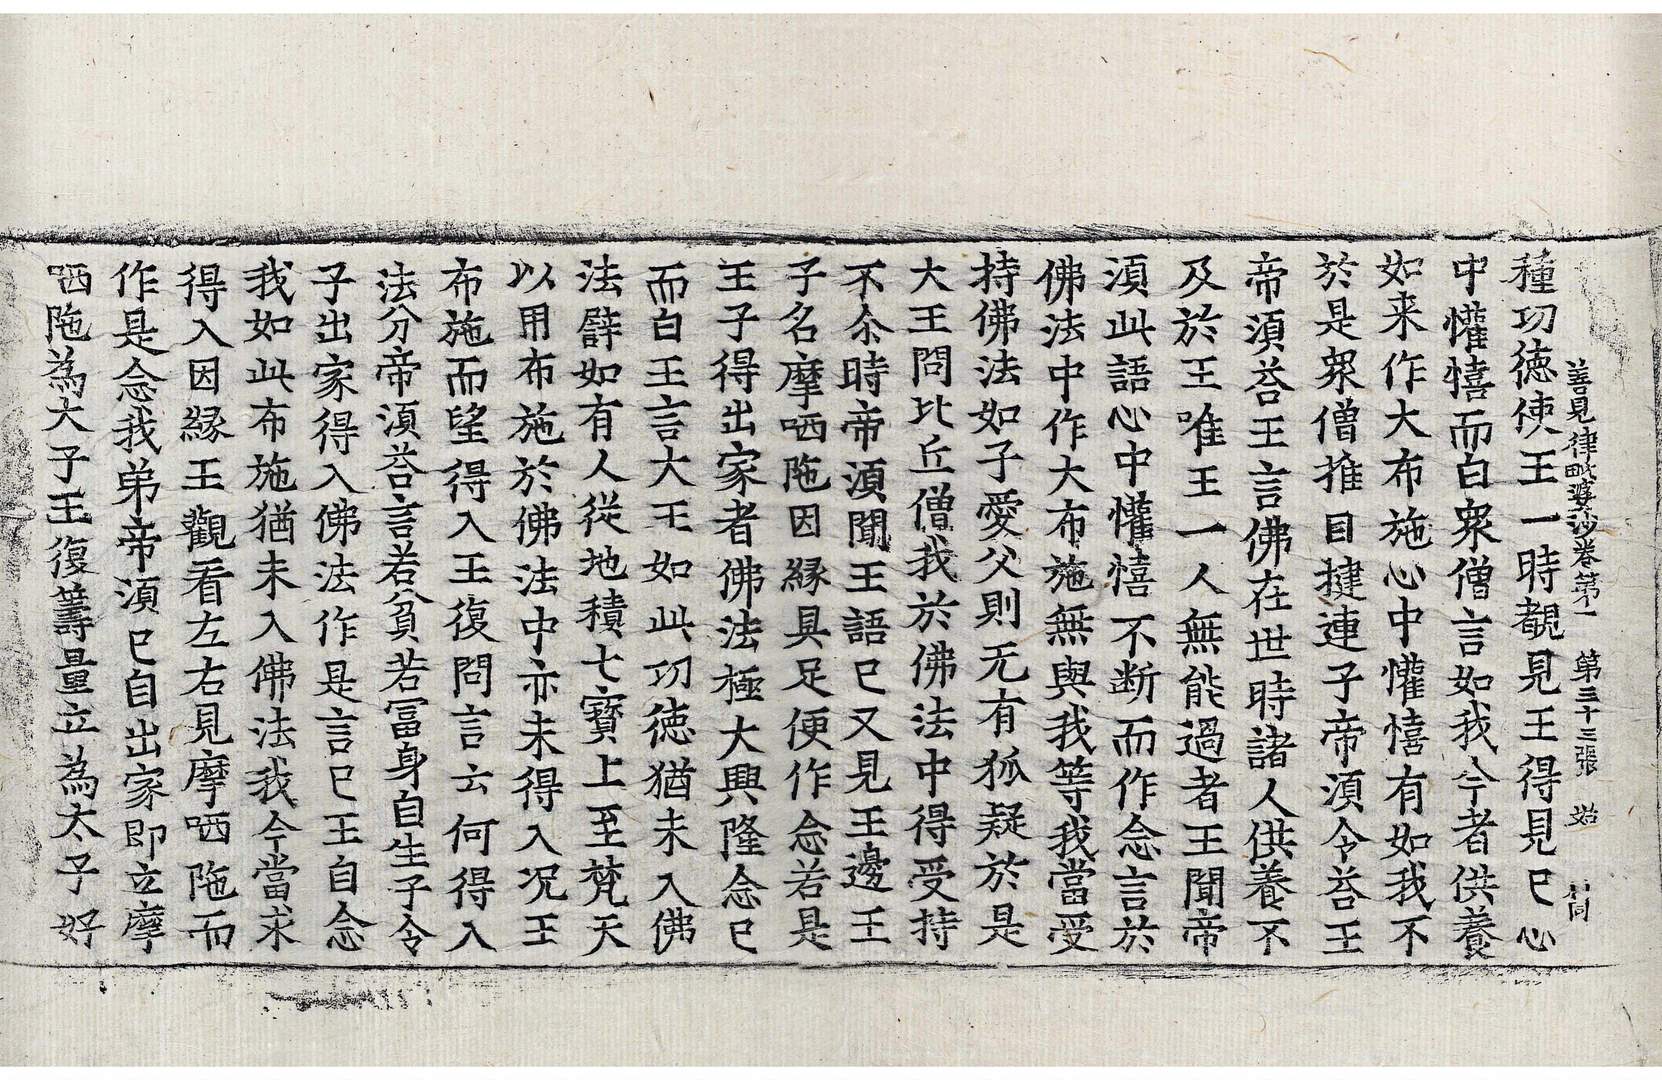 善見律毗婆沙卷第一　第三十三張　始
種功德使王一時覩見王得見已心
中懽憘而白衆僧言如我今者供養
如来作大布施心中懽憘有如我不
於是衆僧推目揵連子帝湏令荅王
帝湏荅王言佛在世時諸人供養不
及於王唯王一人無能過者王聞帝
湏此語心中懽憘不断而作念言於
佛法中作大布施無與我等我當受
持佛法如子愛父則无有狐疑於是
大王問比丘僧我於佛法中得受持
不尒時帝湏聞王語已又見王邊王
子名摩哂陁因縁具足便作念若是
王子得出家者佛法極大興隆念已
而白王言大王如此功德猶未入佛
法譬如有人從地積七寶上至梵天
以用布施於佛法中亦未得入况王
布施而望得入王復問言云何得入
法分帝湏荅言若貧若冨身自生子令
子出家得入佛法作是言已王自念
我如此布施猶未入佛法我今當求
得入因縁王觀看左右見摩哂陁而
作是念我弟帝湏已自出家即立摩
哂陁為太子王復籌量立為太子好